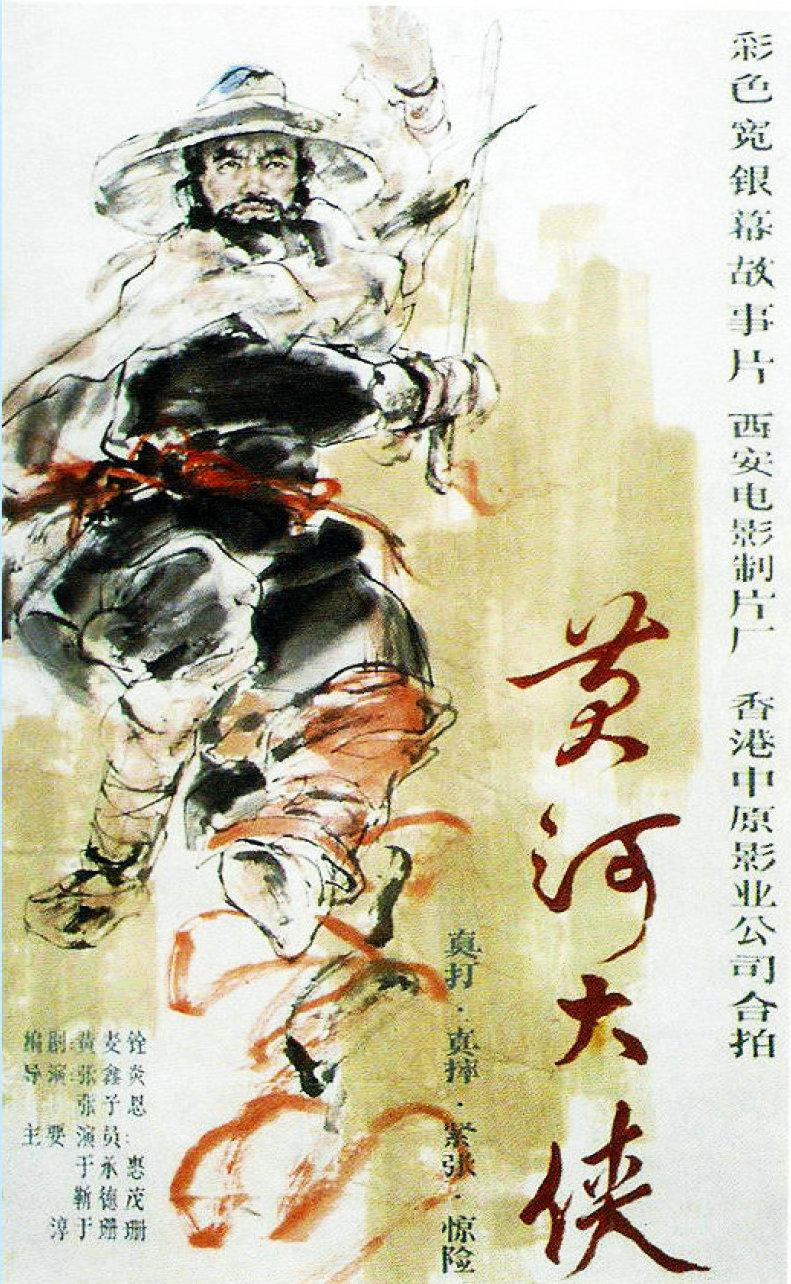 彩色宽银幕故事片 西安电影制片厂 香港中原影业公司合拍
黄河大侠
真打·真摔·紧张·惊险
编剧:黄麦铨
导演:张鑫炎
张子恩
主要演员:
于承惠
靳德茂
淳于珊珊